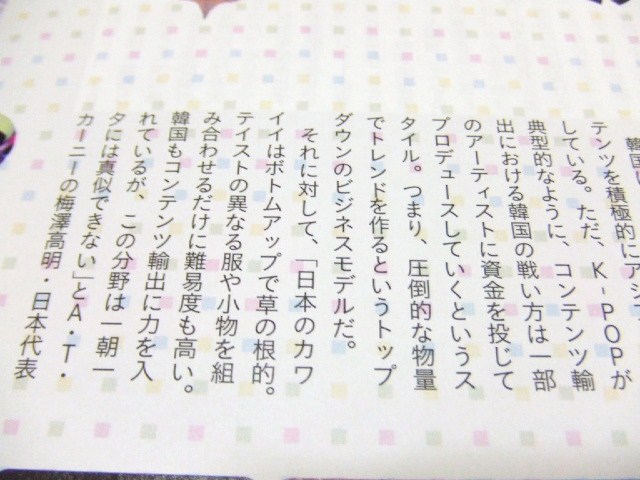 韓国
テンツを積極的にアジ
している。ただ、K-POPが
典型的なように、コンテンツ輸
出における韓国の戦い方は一部
のアーティストに資金を投じて
プロデュースしていくというス
タイル。つまり、圧倒的な物量
でトレンドを作るというトップ
ダウンのビジネスモデルだ。
それに対して、「日本のカワ
イイはボトムアップで草の根的。
テイストの異なる服や小物を組
み合わせるだけに難易度も高い。
韓国もコンテンツ輸出に力を入
れているが、この分野は一朝一
タには真似できない」とA・T・
カーニーの梅澤高明・日本代表